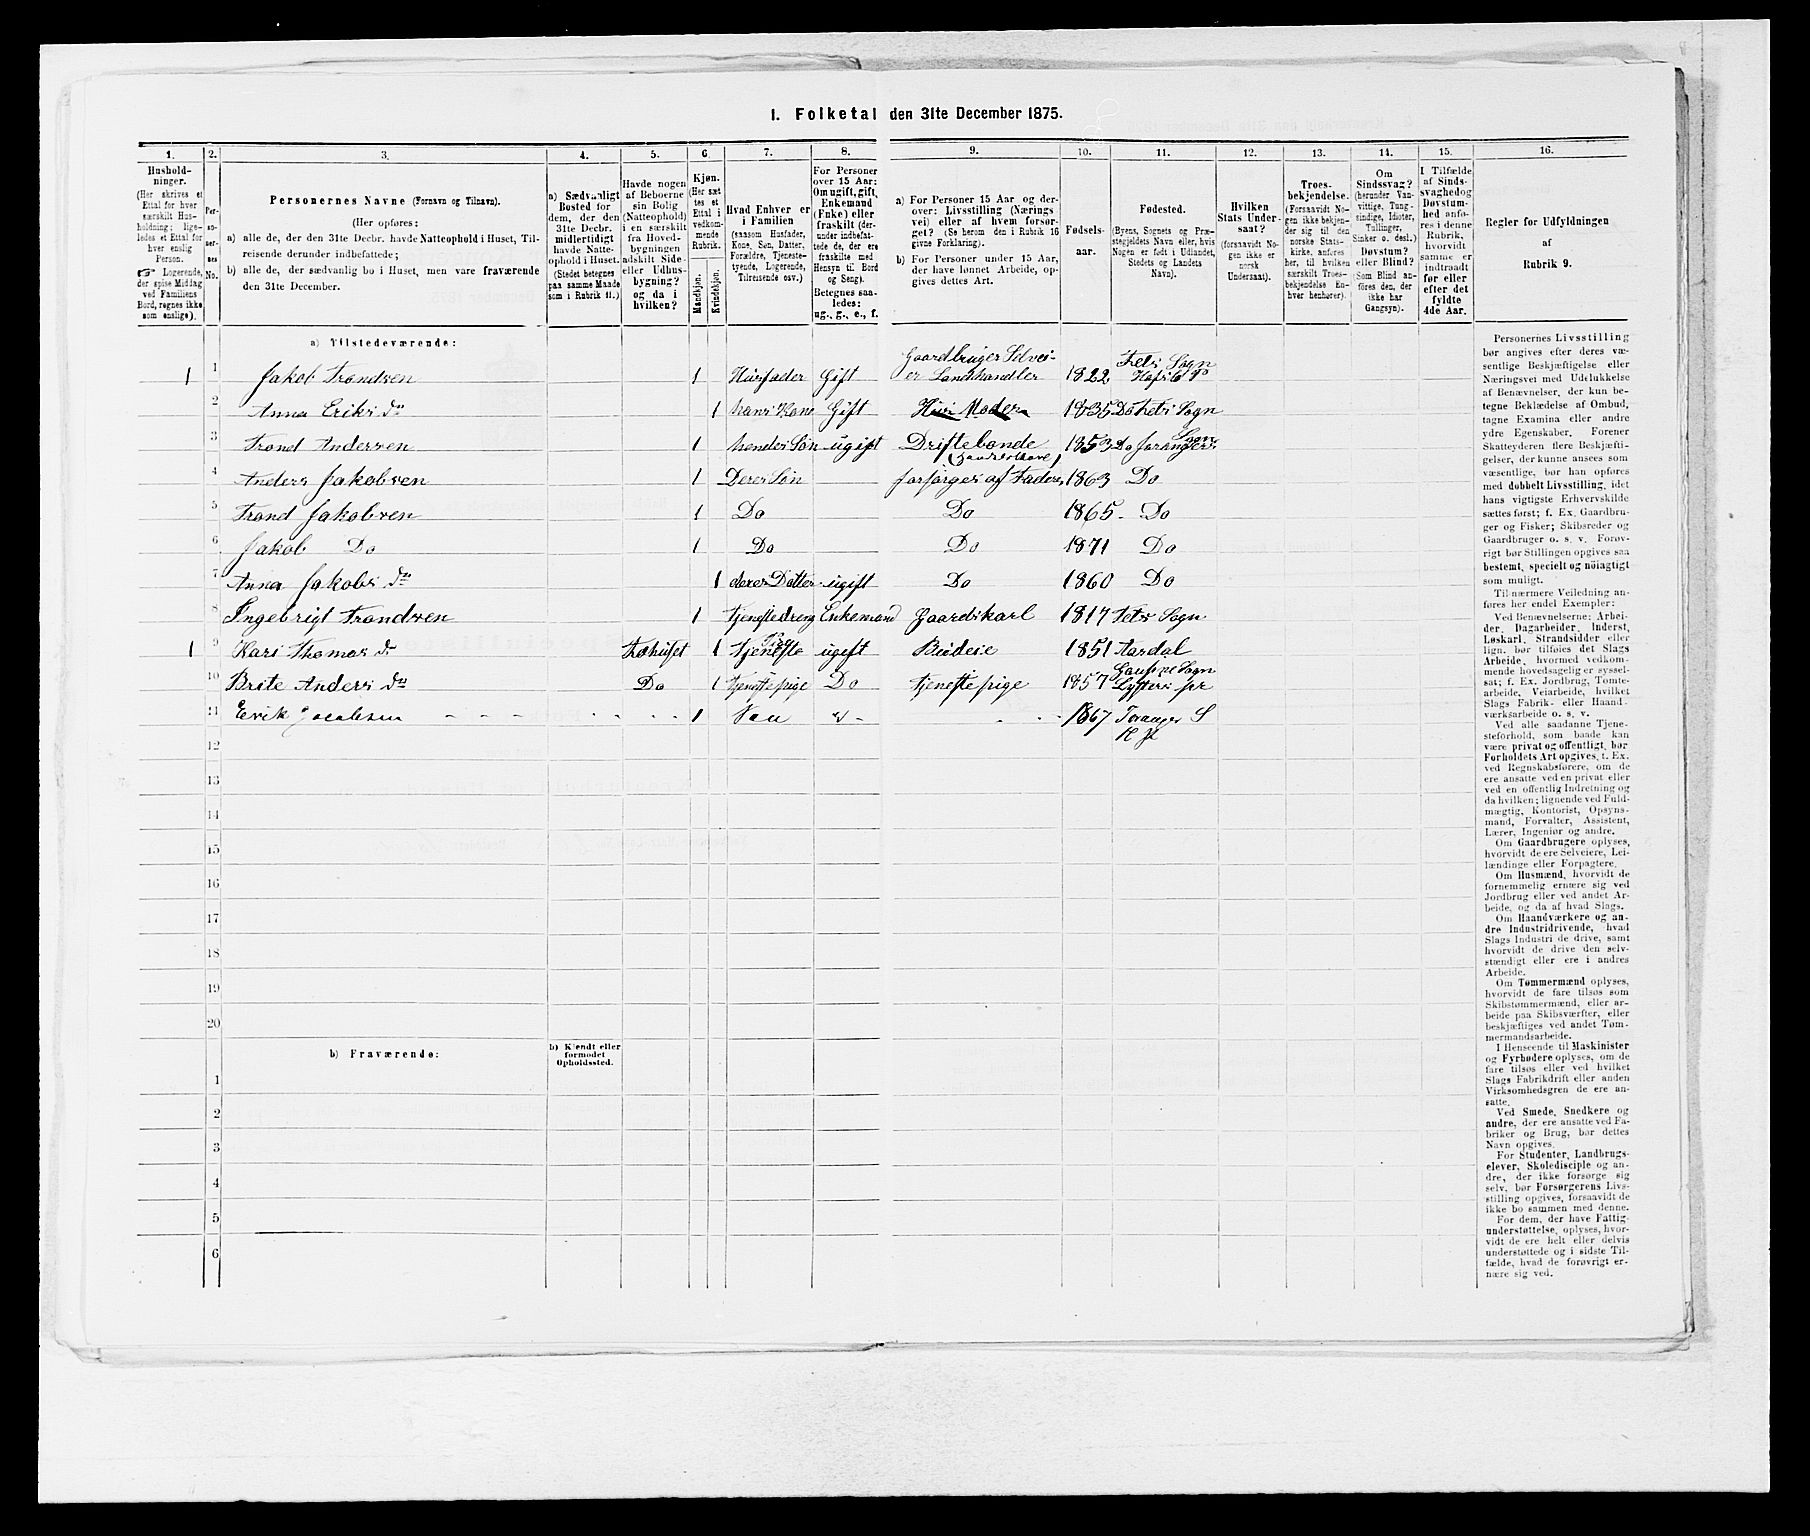 1. Folketal den 31te December 1875.
1. 2. 3. 4. 5. 6. 7. 8. 9. 10. 11. 12. 13. 14. 15. 16.
Hushold-
ninger.
(Her skrives et
Ettal for hver
særskilt Hus-
holdning; lige-
ledes et Ettal for
hver enslig
Person.
☞ Logerende,
der spise Middag
ved Familiens
Bord, regnes ikke
som enslige).
Per-
so-
ner-
nes
No.
Personernes Navne (Fornavn og Tilnavn).
(Her opføres:
a) alle de, der den 31te Decbr. havde Natteophold i Huset, Til-
reisende derunder indbefattede;
b) alle de, der sædvanlig bo i Huset, men vare fraværende
den 31te December.
a) Sædvanligt
Bosted for
dem, der den
31te Decbr.
midlertidigt
havde Natte-
ophold i Huset.
(Stedet betegnes
paa samme Maade
som i Rubrik 11.)
Havde nogen
af Beboerne
sin Bolig
(Natteophold)
i en særskilt
fra Hoved-
bygningen
adskilt Side-
eller Udhus-
bygning?
og da i
hvilken?
Kjøn.
(Her sæt-
tes et
Ettal i
vedkom-
mende
Rubrik.
Mandkjøn.
Kvindekjøn.
Hvad Enhver er
i Familien
(saasom Husfader,
Kone, Søn, Datter,
Forældre, Tjeneste-
tyende, Logerende,
Tilreisende osv.)
For Personer
over 15 Aar:
Om ugift, gift,
Enkemand
(Enke) eller
fraskilt (der-
under indbefat-
tede de, der ere
fraskilte med
Hensyn til Bord
og Seng).
Betegnes saa-
ledes:
ug., g., e., f.
a) For Personer 15 Aar og der-
over: Livsstilling (Nærings
vei) eller af hvem forsør-
get? (Se herom den i Rubrik 16
givne Forklaring).
b) For Personer under 15 Aar,
der have lønnet Arbeide, op-
gives dettes Art.
Fødsels-
aar.
Fødested.
(Byens, Sognets og Præ-
stegjeldets Navn eller, hvis
Nogen er født i Udlandet,
Stedets og Landets
Navn).
Hvilken
Stats Under-
saat?
(forsaavidt No-
gen ikke er
norsk
Undersaat).
Troes-
bekjendelse.
(Forsaavidt No-
gen ikke bekjen-
der sig til den
norske Stats-
kirke, anføres
her, til hvilken
særskilt Troes-
bekjendelse En-
hver henhører).
Om
Sindssvag?
(herunder Van-
vittige, Tung-
sindige, Idioter,
Tullinger,
Sinker o. desl.)
Døvstum?
eller Blind?
(Som Blind an-
føres den, der
ikke har
Gangsyn).
I Tilfælde
af Sinds-
svaghed og
Døvstum-
hed anfø-
res i denne
Rubrik,
hvorvidt
samme er
indtraadt
før eller
efter det
fyldte
4de Aar.
Regler for Udfyldningen
af
Rubrik 9.
a) Tilstedeværende:
1 1 Jakob Trondsen 1 Husfader Gift Gaardbruger Selvei-
er Landhandler 1822 Fets Sogn
Hafslo
2 Anna Eriks dr 1 hans Kone Gift Husmoder 1835 Do Fets Sogn
3 Trond Andersen 1 hendes Søn ugift Driftebonde 1853 Do Joranger Sogn
4 Anders Jakobsen 1 Deres Søn forsørges af Faderen 1863 Do
5 Trond Jakobsen 1 Do Do 1865 - Do
6 Jakob Do 1 Do Do 1871 Do
7 Anna Jakobs dr 1 deres Datter ugift Do 1860 Do
8 Ingebrigt Trondsen 1 Tjenestedreng Enkemand Gaardskarl 1817 Fets Sogn
1 9 Kari Thomas dr Kohuset 1 Tjeneste Pige ugift Budeie 1851 Aardal
10 Brite Anders dr Do 1 Tjenestepige Do tjenestepige 1857 Gaupne Sogn
Lysters pr
11 Erik Jacobsen 1 Søn 1867 Joranger S
H Pr
12
13
14
15
16
17
18
19
20
b) Fraværende:
b) Kjendt eller
formodet
Opholdssted.
1
2
3
4
5
6
Personernes Livsstilling
bør angives efter deres væ-
sentlige Beskjæftigelse eller
Næringsvei med Udelukkelse
af Benævnelser, der kun be-
tegne Beklædelse af Ombud,
tagne Examina eller andre
ydre Egenskaber. Forener
Skatteyderen flere Beskjæfti-
gelser, der kunne ansees som
væsentlige, bør han opføres
med dobbelt Livsstilling, idet
hans vigtigste Erhvervskilde
sættes først; f. Ex. Gaardbru-
ger og Fisker; Skibsreder og
Gaardbruger o. s. v. Forøv-
rigt bør Stillingen opgives saa
bestemt, specielt og nøiagtigt
som muligt.
Til nærmere Veiledning an-
føres her endel Exempler:
Ved Benævnelserne: Arbei-
der, Dagarbeider, Inderst,
Løskarl, Strandsidder eller
lign. bør tilføies det Slags
Arbeide, hvormed vedkom-
mende hovedsagelig er syssel-
sat; f. Ex. Jordbrug, Tomte-
arbeide, Veiarbeide, hvilket
Slags Fabrik- eller Haand-
værksarbeide o. s. v.
Ved alle saadanne Tjene-
steforhold, som baade kan
være privat og offentligt, bør
Forholdets Art opgives, t. Ex.
ved Regnskabsførere, om de
ere ansatte ved en privat eller
ved en offentlig Indretning og
da hvilken; lignende ved Fuld-
mægtig, Kontorist, Opsyns-
mand, Forvalter, Assistent,
Lærer, Ingeniør og andre.
Om Gaardbrugere oplyses,
hvorvidt de ere Selveiere, Lei-
lændinge eller Forpagtere.
Om Husmænd, hvorvidt de
fornemmelig ernære sig ved
Jordbrug eller ved andet Ar-
beide, og da af hvad Slags.
Om Haandværkere og an-
dre Industridrivende, hvad
Slags Industri de drive, samt
hvorvidt de drive den selv-
stændigt eller ere i andres
Arbeide.
Om Tømmermænd oplyses,
hvorvidt de fare tilsøs som
Skibstømmermænd, eller ar-
beide paa Skibsværfter, eller
beskjæftiges ved andet Tøm-
mermandsarbeide.
I Henseende til Maskinister
og Fyrbødere oplyses, om de
fare tilsøs eller ved hvilket
Slags Fabrikdrift eller anden
Virksomhedsgren de ere an-
satte.
Ved Smede, Snedkere og
andre, der ere ansatte ved Fa-
briker og Brug, bør dettes
Navn opgives.
For Studenter, Landbrugs-
elever, Skoledisciple og an-
dre, der ikke forsørge sig
selv, bør Forsørgerens Livs-
stilling opgives, forsaavidt de
ikke bo sammen med denne.
For dem, der have Fattig-
understøttelse, oplyses, hvor-
vidt de ere helt eller delvis
understøttede og i sidste Til-
fælde, hvad de forøvrigt er-
nære sig ved.